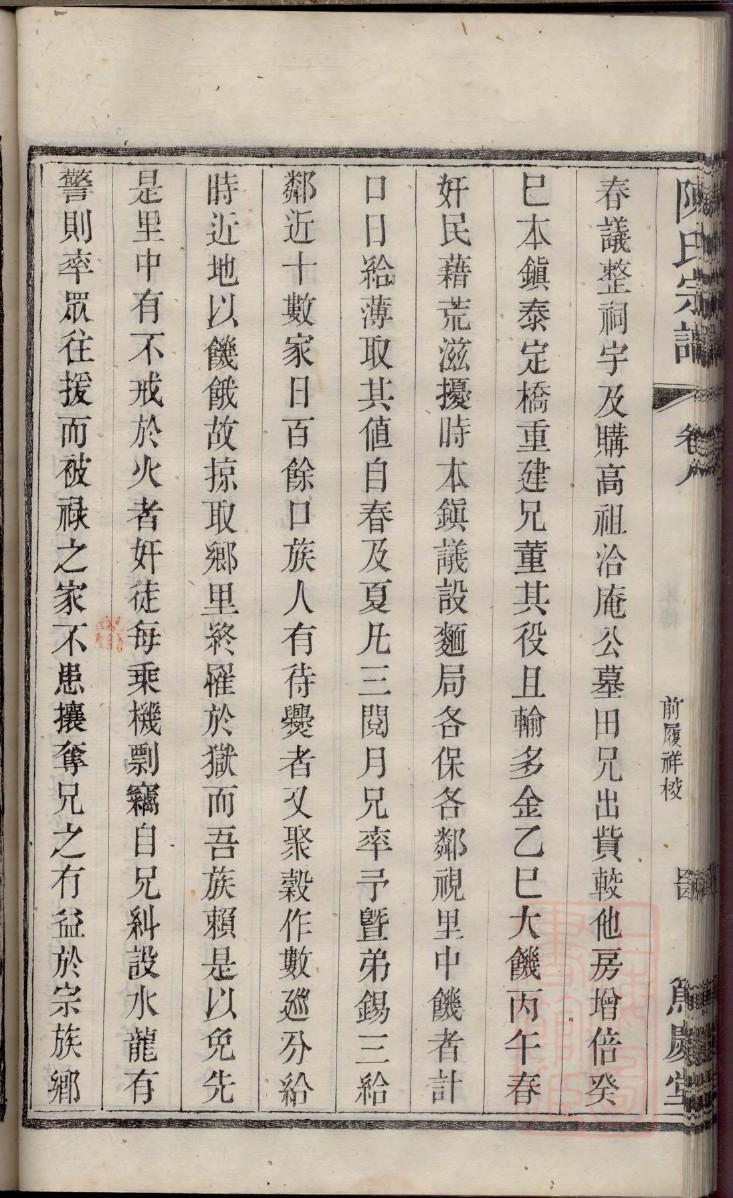 陳氏宗譜
卷八
前履祥校
篤慶堂
春議整祠宇及購高祖洽庵公墓田兄出貲較他房增倍癸
巳本鎮泰定橋重建兄董其役且輸多金乙巳大饑丙午春
奸民藉荒滋擾時本鎮議設麵局各保各鄰視里中饑者計
口日給薄取其值自春及夏凡三閱月兄率予暨弟錫三給
鄰近十數家日百餘口族人有待爨者又聚穀作數廵分給
時近地以饑餓故掠取鄉里終罹於獄而吾族賴是以免先
是里中有不戒於火者奸徒每乘機剽竊自兄糾設水龍有
警則率眾往援而被祿之家不患攘奪兄之有益於宗族鄉